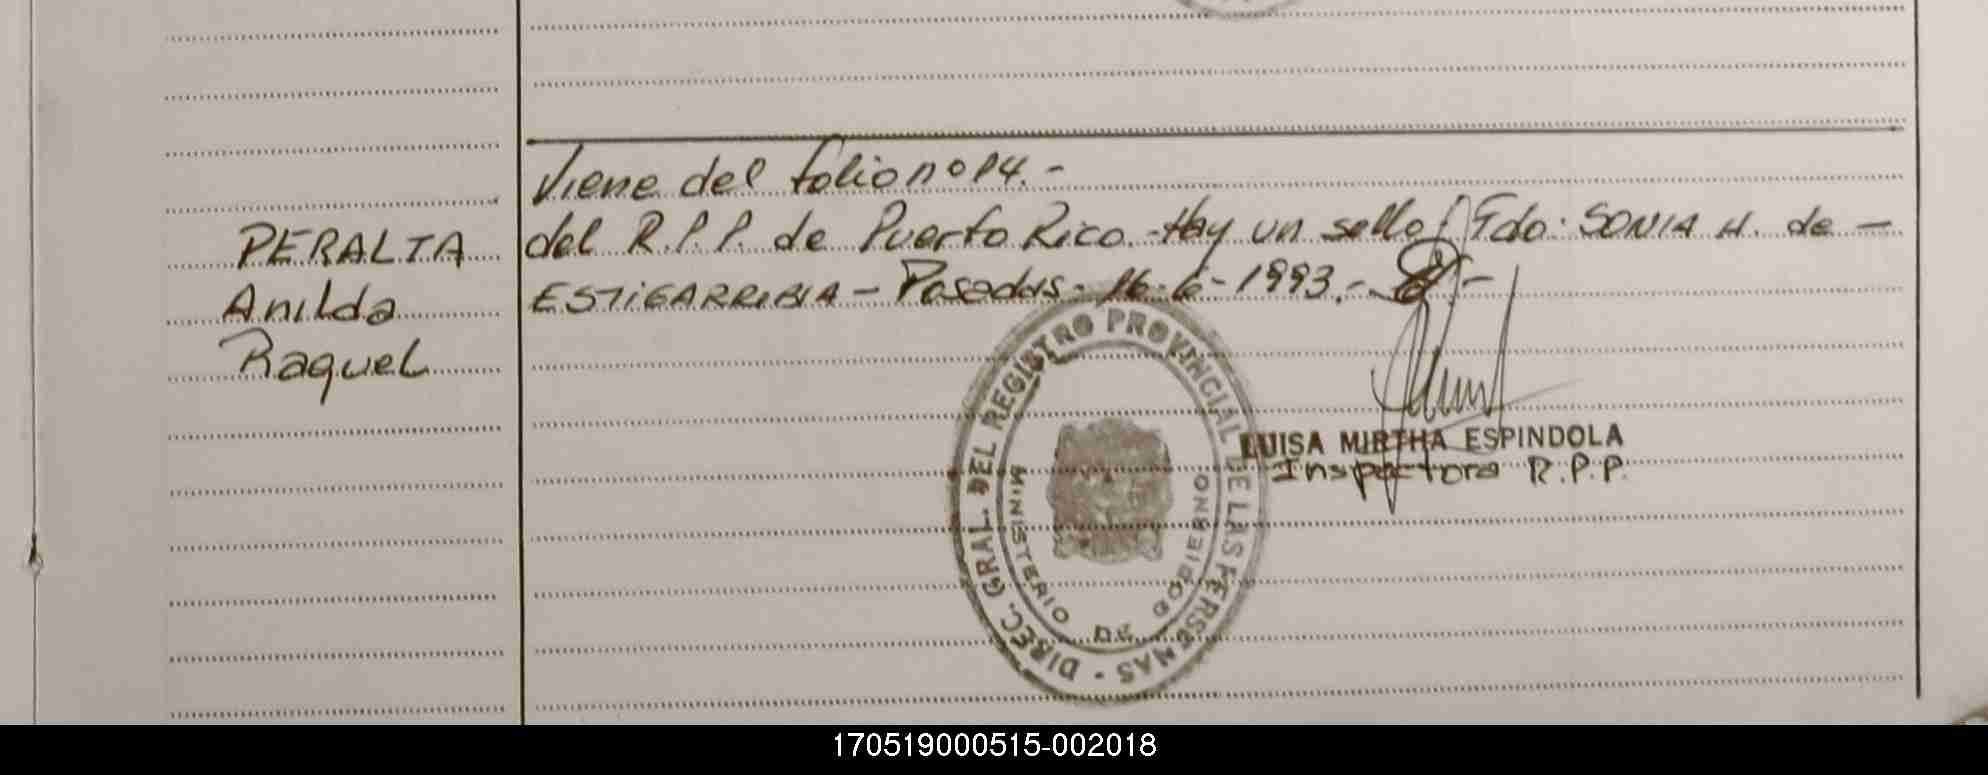 Viene del folio nº 14.-
PERALTA
Anilda
Raquel
del R.P.P. de Puerto Rico.-Hay un sello/ Fdo: SONIA H. de -
ESTIGARRIBIA - Posadas- 16-6-1993.-
DIREC. GRAL. DEL REGISTRO PROVINCIAL DE LAS PERSONAS -
MINISTERIO DE GOBIERNO
LUISA MIRTHA ESPINDOLA
Inspectora R.P.P.
170519000515-002018